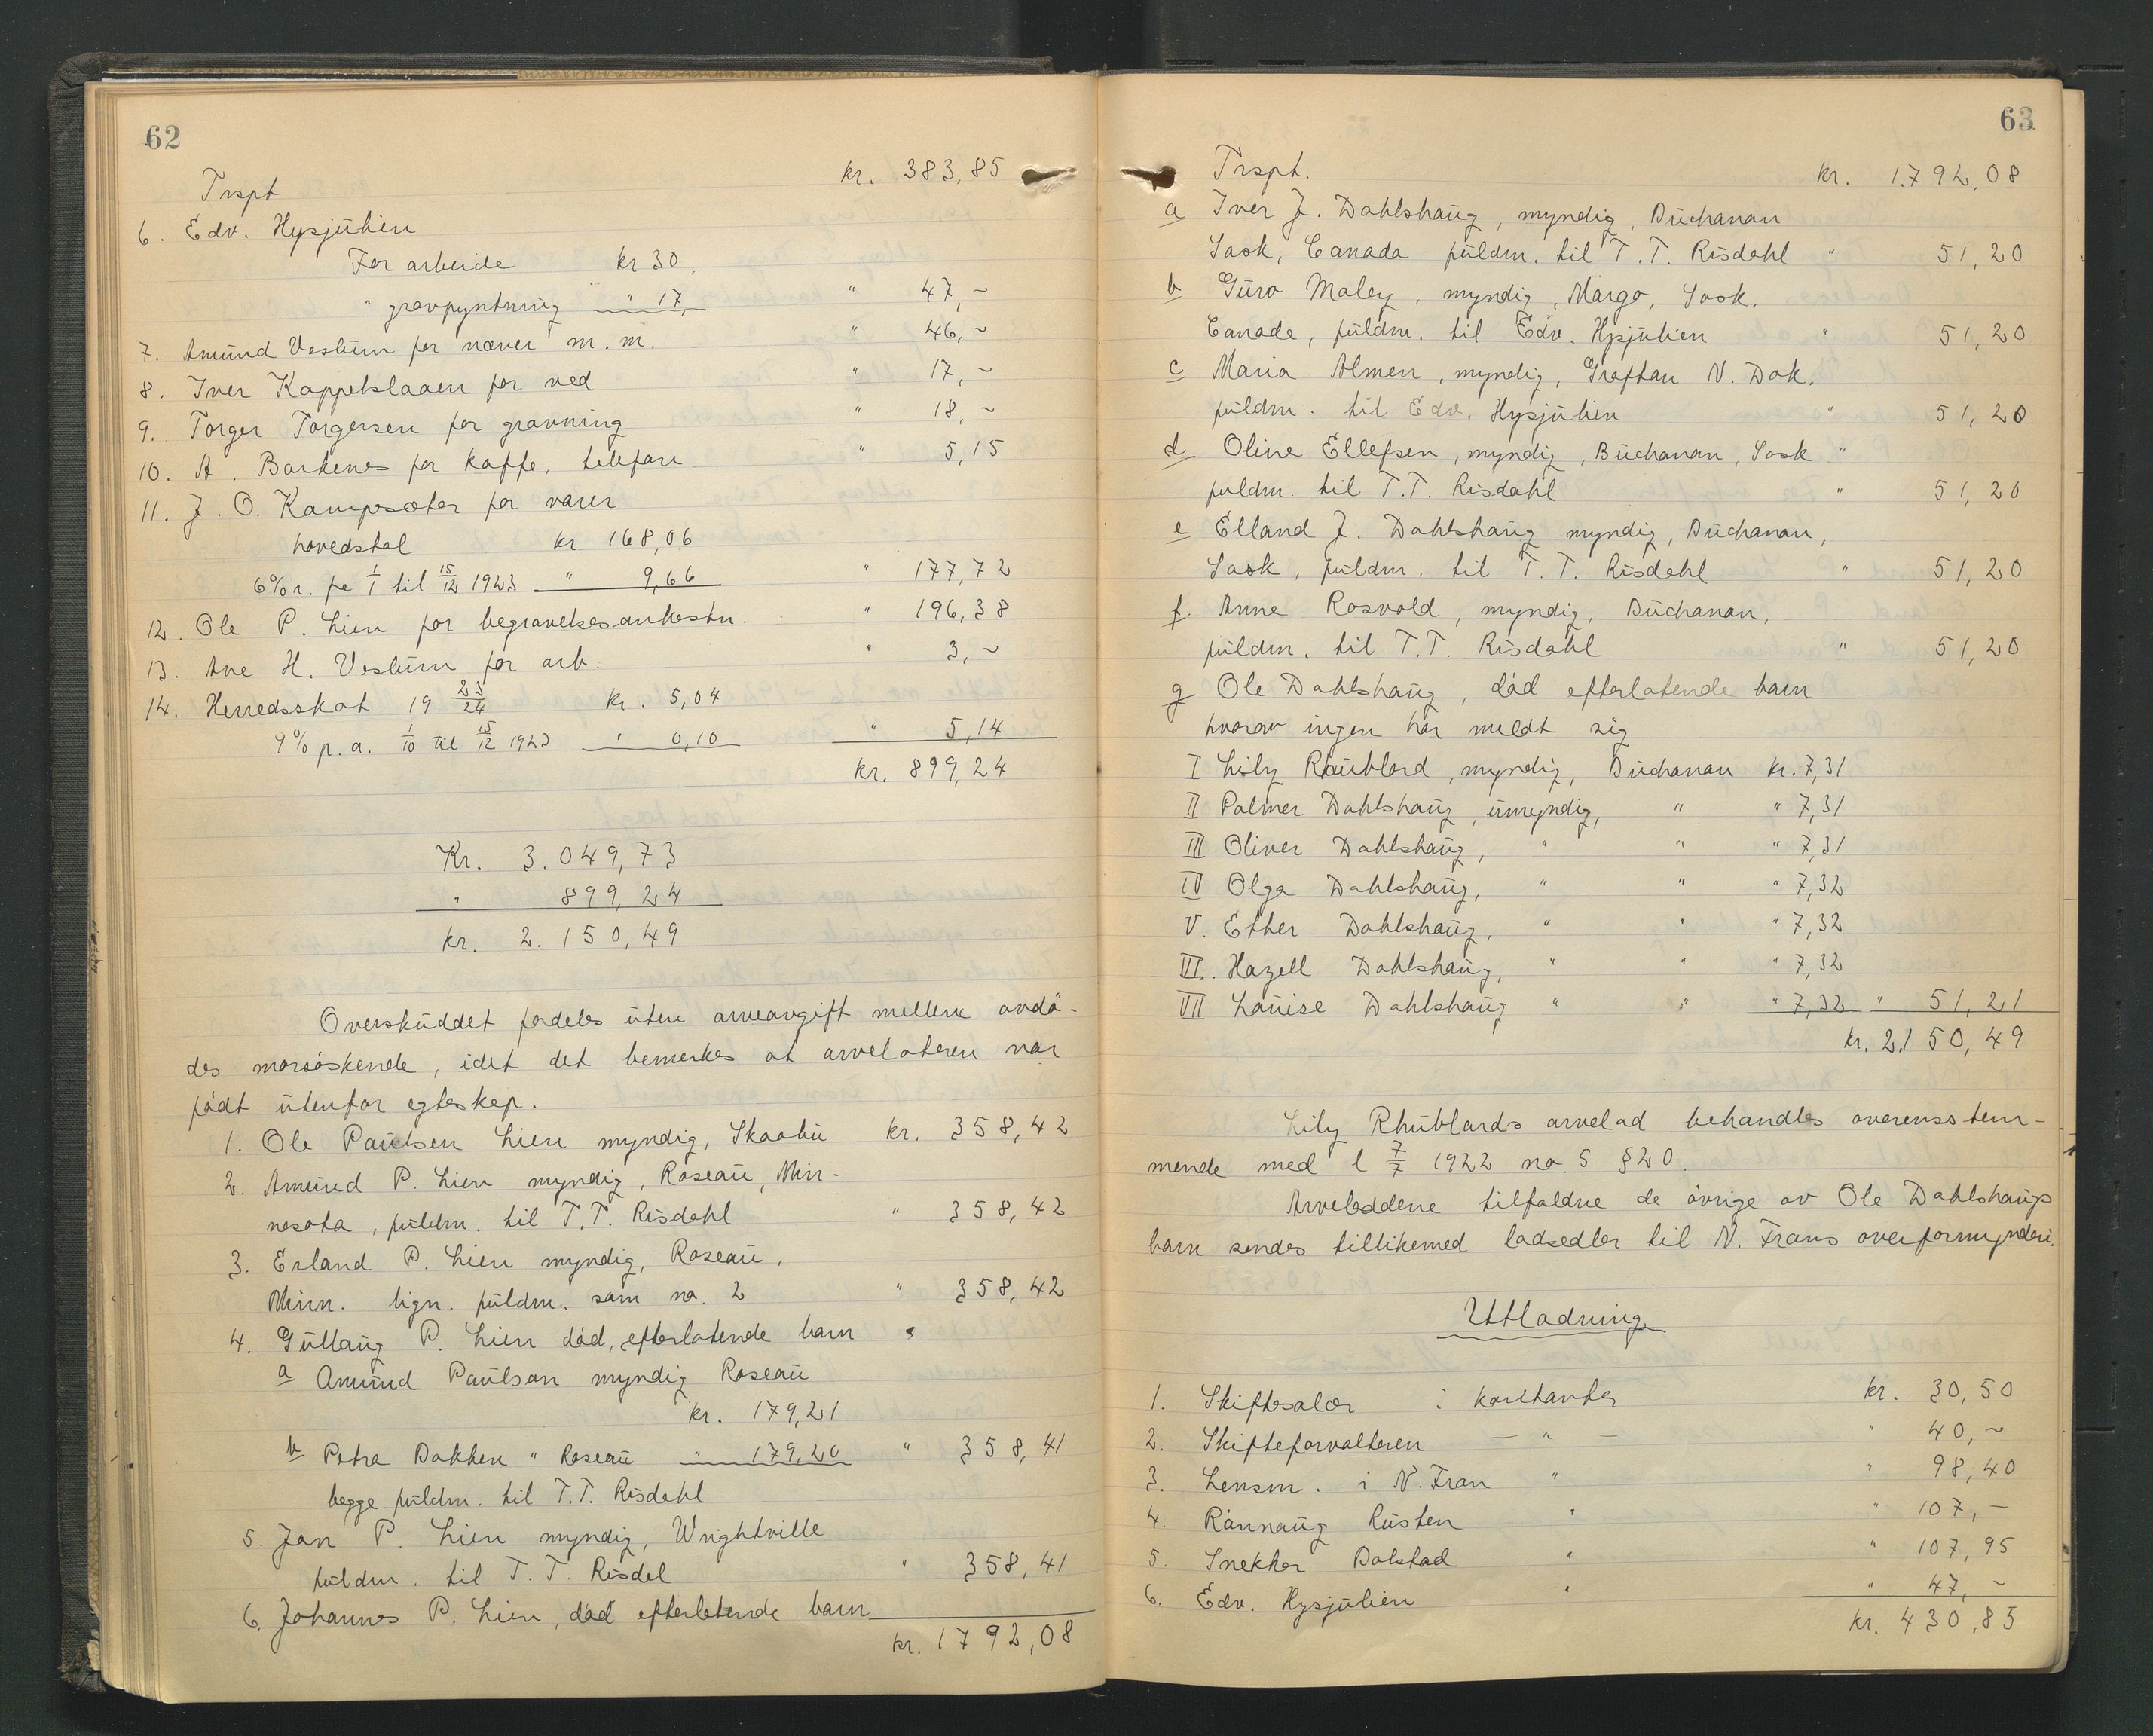 62
Trspt kr. 383,85
6. Edv. Hysjulien
For arbeide kr 30,
" gravpyntning " 17, " 47,~
7. Amund Veslum for næver m.m. " 46,~
8. Iver Kappelslaaen for ved " 17,~
9. Torger Torgersen for gravning " 18,~
10. A. Barkenes for kaffe, telefon " 5,15
11. J. O. Kampsæter for varer
hovedstol kr 168,06
6% r. fra 1/1 til 15/12 1923 " 9,66 " 177,72
12. Ole P. Lien for begravelsesomkostn. " 196,38
13. Ane H. Veslum for arb. " 3,~
14. Herredsskat 19 23/24 kr. 5,04
9% p.a. 1/10 til 15/12 1923 " 0,10 " 5,14
kr. 899,24
Kr. 3.049,73
" 899,24
kr. 2.150,49
Overskuddet fordeles uten arveavgift mellem avdø-
des morsøskende, idet det bemerkes at arvelateren var
født utenfor egteskap.
1. Ole Paulsen Lien myndig, Skaabu kr. 358,42
2. Amund P. Lien myndig, Roseau, Min-
nesota, fuldm. til T.T. Risdahl " 358,42
3. Erland P. Lien myndig, Roseau,
Minn. lign. fuldm. som no. 2 " 358,42
4. Gullaug P. Lien død, efterlatende barn
a Amund Paulson myndig Roseau
kr. 179,21
b Petra Dakken " Roseau " 179,20 " 358,41
begge fuldm. til T.T. Risdahl
5. Jon P. Lien myndig, Wrightville
fuldm. til T.T. Risdal " 358,41
6. Johannes P. Lien, død efterlatende barn
kr. 1792,08
63
Trspt. kr. 1.792,08
a Iver J. Dahlshaug, myndig, Buchanan
Sask, Canada fuldm. til T.T. Risdahl " 51,20
b Guro Maley, myndig, Margo, Sask.
Canada, fuldm. til Edv. Hysjulien " 51,20
c Maria Almen, myndig, Graftan N. Dak.
fuldm. til Edv. Hysjulien " 51,20
d Oline Ellefsen, myndig, Buchanan, Sask "
fuldm. til T.T. Risdahl " 51,20
e Elland J. Dahlshaug myndig, Buchanan,
Sask, fuldm. til T.T. Risdahl " 51,20
f. Anne Rosvold, myndig, Buchanan,
fuldm. til T.T. Risdahl " 51,20
g Ole Dahlshaug, død efterlatende barn
hvorav ingen har meldt sig
I Lily Rhublard, myndig, Buchanan kr. 7,31
II Palmer Dahlshaug, umyndig, " " 7,31
III Oliver Dahlshaug, " " " 7,31
IV Olga Dahlshaug, " " " 7,32
V. Esther Dahlshaug, " " " 7,32
VI. Hazell Dahlshaug, " " " 7,32
VII Louise Dahlshaug " " " 7,32 " 51,21
kr. 2150,49
Lily Rhublards arvelod behandles overensstem-
mende med l 7/7 1922 no. 5 §20.
Arveloddene tilfaldne de øvrige av Ole Dahlshaugs
barn sendes tillikemed lodsedler til N. Frons overformynderi.
Utlodning
1. Skiftesalær i kontanter kr. 30,50
2. Skifteforvalteren — " — " 40,~
3. Lensm. i N. Fron " " 98,40
4. Rønnaug Rusten " " 107,-
5. Snekker Dalstad " " 107,95
6. Edv. Hysjulien " " 47,~
kr. 430,85